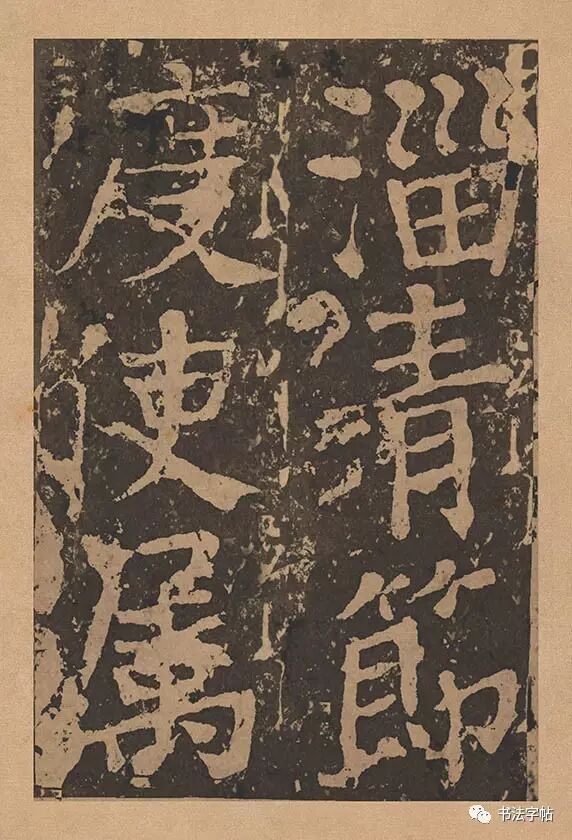 淄青節
度使屬
书法字帖